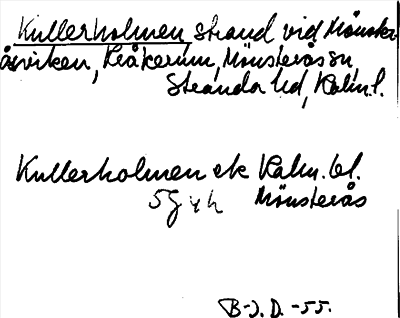 Kullerholmen, strand vid Mönster
åsviken, Kråkerum, Mönsterås sn,
Stranda hd, Kalm. l.
Kullerholmen ek Kalm. bl.
5G 4h Mönsterås
B-J. D. -55.